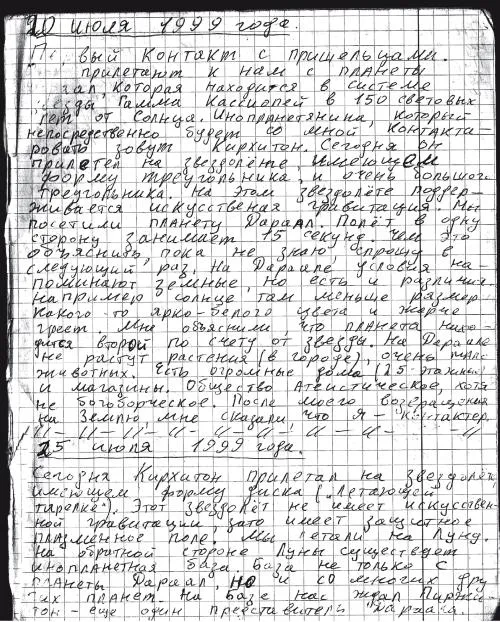 20 июля 1999 года.
Пе вый контакт с пришельцами.
прилетают к нам с планеты
которая находится в системе
езды Гамма Кассиопей в 150 световых
лет от Солнца. Инопланетянина, который
непосредственно будет со мной контакти-
ровать зовут Кирхитон. Сегодня он
прилетел на звездолёте имеющем
форму треугольника, и очень большого
треугольника. На этом звездолёте поддер-
живается искуственая гравитация. Мы
посетили планету Дараал. Полёт в одну
сторону занимает 15 секунд. Чем это
объяснить, пока не знаю, спрошу в
следующий раз. На Дараале условия на-
поминают земные, но есть и различия.
например солнце там меньше размер
какого-то ярко-белого цвета и жарче
греет. Мне объяснили, что планета нахо-
дится второй по счету от звезды. На Дараале
не растут растения (в городе), очень мало
животных. Есть огромные дома (25-этажны
и магазины. Общество Атеистическое, хотя
не богоборческое. После моего возвращения
на Землю, мне сказали, что я - контактер.
-//-//-//-//-//-//-//-//-//
25 июля 1999 года.
Сегодня Кирхитон прилетал на звездолёте,
имеющем форму диска („Летающей
тарелке"). Этот звездолёт не имеет искусствен-
ной гравитации зато имеет защитное
плазменное поле. Мы летали на Луну.
на обратной стороне Луны существует
инопланетная база. База не только с
планеты Дараал, но и со многих дру
гих планет. На базе нас ждал
тон - еще один представитель Дараала.